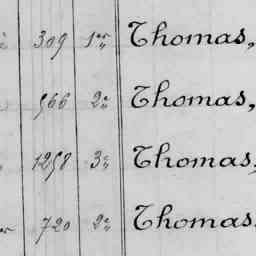 309 1er Thomas,
566 2e Thomas,
1258 3e Thomas,
720 2e Thomas.